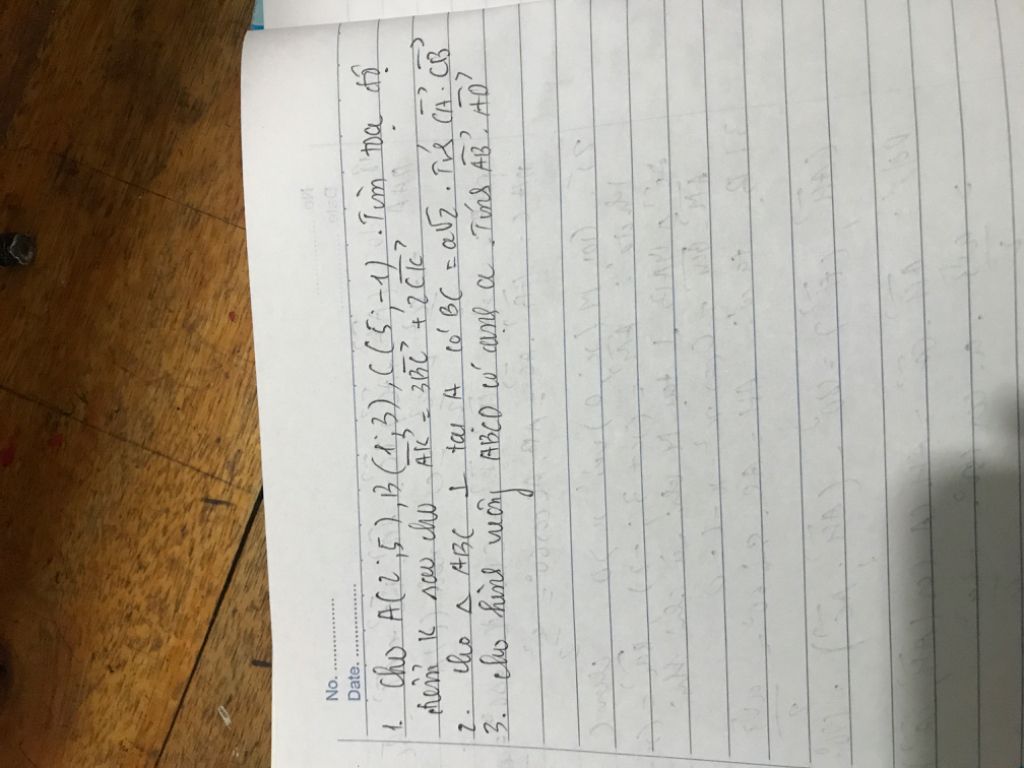 No. ..................
Date. ..................
1. Cho A(2;5), B(1;3), C(5;-1). Tìm toạ độ
điểm K sao cho AK→ = 3BC→ + 2CK→
2. cho Δ ABC ⊥ tại A có BC = a√2. Tính CA→. CB→
3. cho hình vuông ABCD có cạnh a. Tính AB→. AD→